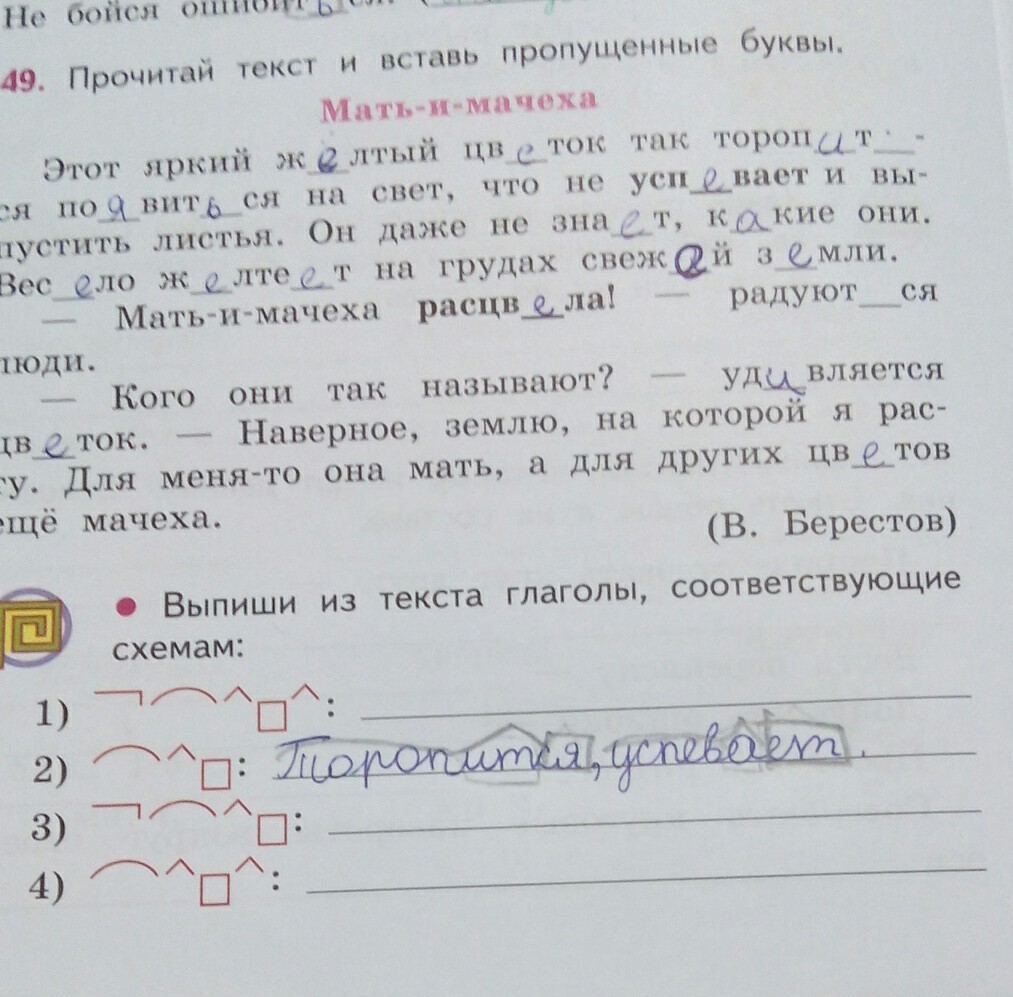 Не бойся ошибит_ь_ся.
49. Прочитай текст и вставь пропущенные буквы.
Мать-и-мачеха
Этот яркий ж_е_лтый цв_е_ток так тороп_и_т__-
ся по_я_вит_ь_ся на свет, что не усп_е_вает и вы-
пустить листья. Он даже не зна_е_т, к_а_кие они.
Вес_е_ло ж_е_лте_е_т на грудах свеж_е_й з_е_мли.
— Мать-и-мачеха расцв_е_ла! — радуют__ся
люди.
— Кого они так называют? — уд_и_вляется
цв_е_ток. — Наверное, землю, на которой я рас-
ту. Для меня-то она мать, а для других цв_е_тов
ещё мачеха.
(В. Берестов)
• Выпиши из текста глаголы, соответствующие
схемам:
1) :
2) : Торопится, успевает.
3) :
4) :